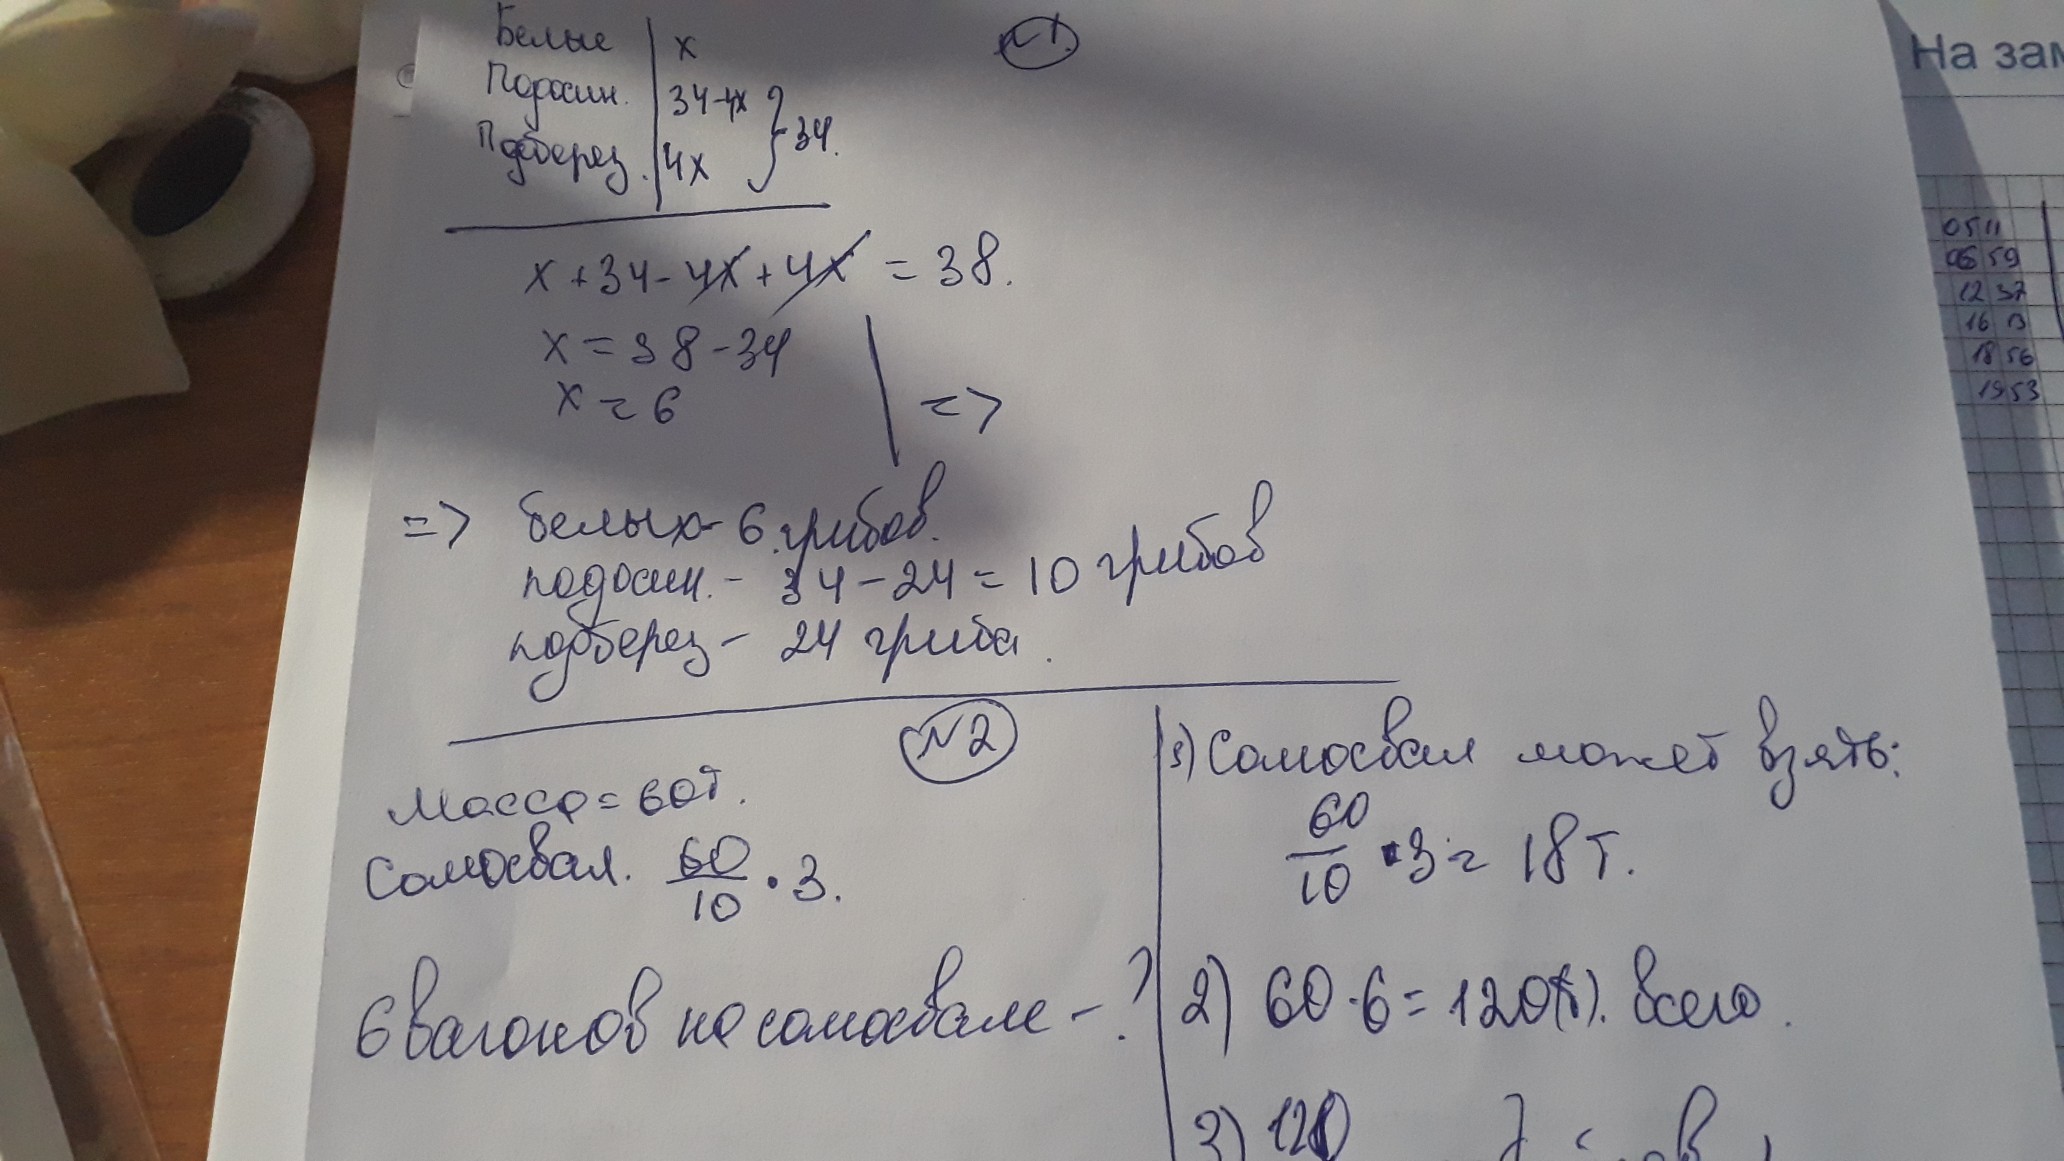 №1
Белые x
Подосин. 34-4x
Подберез. 4x } 34.
x + 34 - 4x + 4x = 38.
x = 38 - 34
x = 6 =>
=> белых - 6 грибов.
подосин. - 34 - 24 = 10 грибов
подберез - 24 гриба.
№2
Масса = 60т.
Самосвал. 60/10 · 3.
6 вагонов на самосвале - ?
1) Самосвал может взять:
60/10 · 3 = 18 т.
2) 60 · 6 = 120(т). всего.
3) 120
На зам
05 11
06 59
12 37
16 13
18 56
19 53